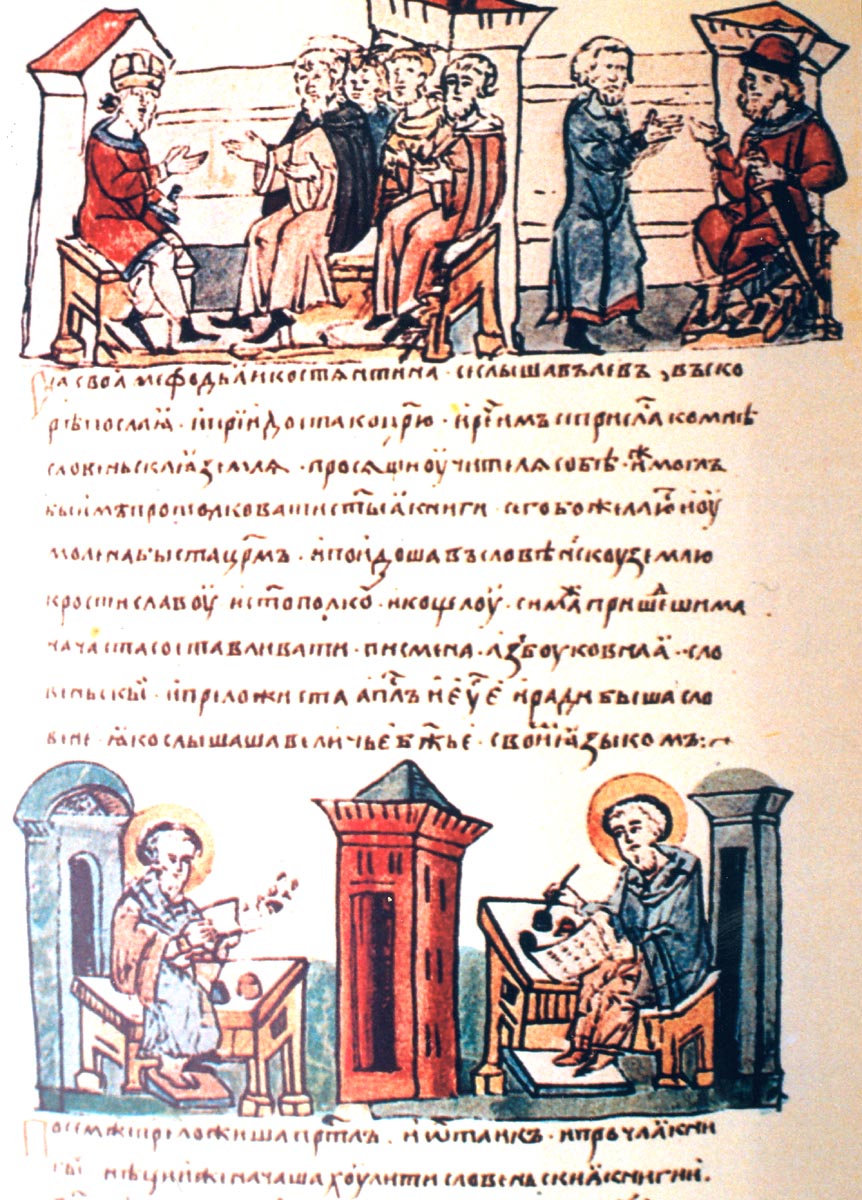 сꙗ своꙗ мефодьꙗ и костѧнтина · се слышавъ левъ, въско
рѣ посла ꙗ · и прїидоста ко цр҃ю · и реⷱ има се прислаⷭ ко мнѣ
словеньскаꙗ землѧ · просѧще оучителѧ собѣ · иже моглъ
бы имъ протолковати ст҃ыꙗ книги · сего бо желаюⷮ и оу
молена быста цр҃мъ · и поидоша въ словѣньскоую землю
к ростиславоу и ст҃ополкоу · и коцелоу · сима же пришеⷣшима
начаста составливати · писмена · азъбоуковнаꙗ · сло
веньскы · и преложиста апⷭлъ и еуⷢе · и ради быша сло
вене · ꙗко слышаша величье бж҃ье · своиⷨ ꙗзыкомъ :·
По семъ же преложиша пⷭртлъ · и ѡктаикъ · и прочаꙗ кни
гы · нѣции же начаша хоулити словеньскиꙗ книги ·